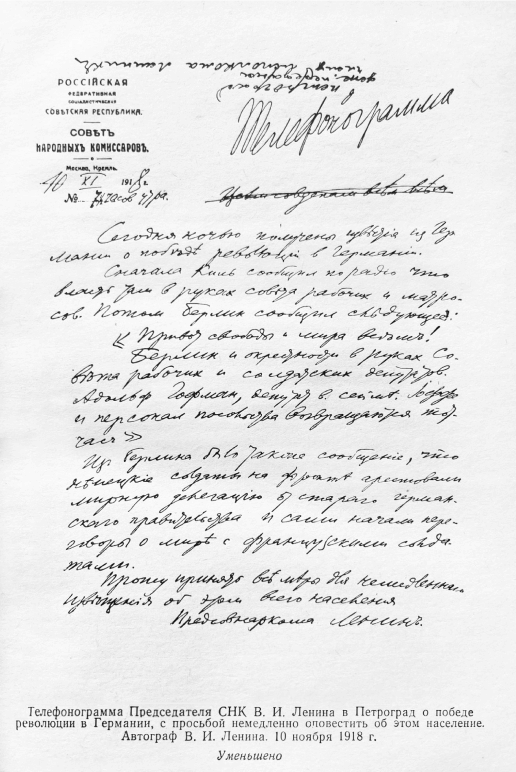 Петроград
РОССІЙСКАЯ
ФЕДЕРАТИВНАЯ
СОЦІАЛИСТИЧЕСКАЯ
СОВѢТСКАЯ РЕСПУБЛИКА.
СОВѢТЪ
НАРОДНЫХЪ КОМИССАРОВЪ.
Москва, Кремль.
10 XI 1918 г.
№ 7 1/4 часов утра.
Телефонограмма
Сегодня ночью получены извѣстія из Гер
мании о побѣдѣ революціи в Германіи.
Сначала Киль сообщил по радио что
власть там в руках совѣта рабочих и матро-
сов. Потом Берлин сообщил слѣдующее:
« Привѣт свободы и мира всѣмъ!
Берлин и окрестности в руках Со-
вѣта рабочих и солдатских депутатов.
Адольф Гофман, депутат в. сейм. Иоффе
и персонал посольства возвращаются тот-
час »
Из Берлина было также сообщение, что
нѣмецкіе солдаты на фронтѣ арестовали
мирную делегацію от стараго герман-
скаго правительства и сами начали пере-
говоры о мирѣ с французскими солда-
тами.
Прошу принять всѣ мѣры для немедленнаго
извѣщенія об этом всего населенія
Предсовнаркома Ленинъ.
Телефонограмма Председателя СНК В. И. Ленина в Петроград о победе
революции в Германии, с просьбой немедленно оповестить об этом население.
Автограф В. И. Ленина. 10 ноября 1918 г.
Уменьшено